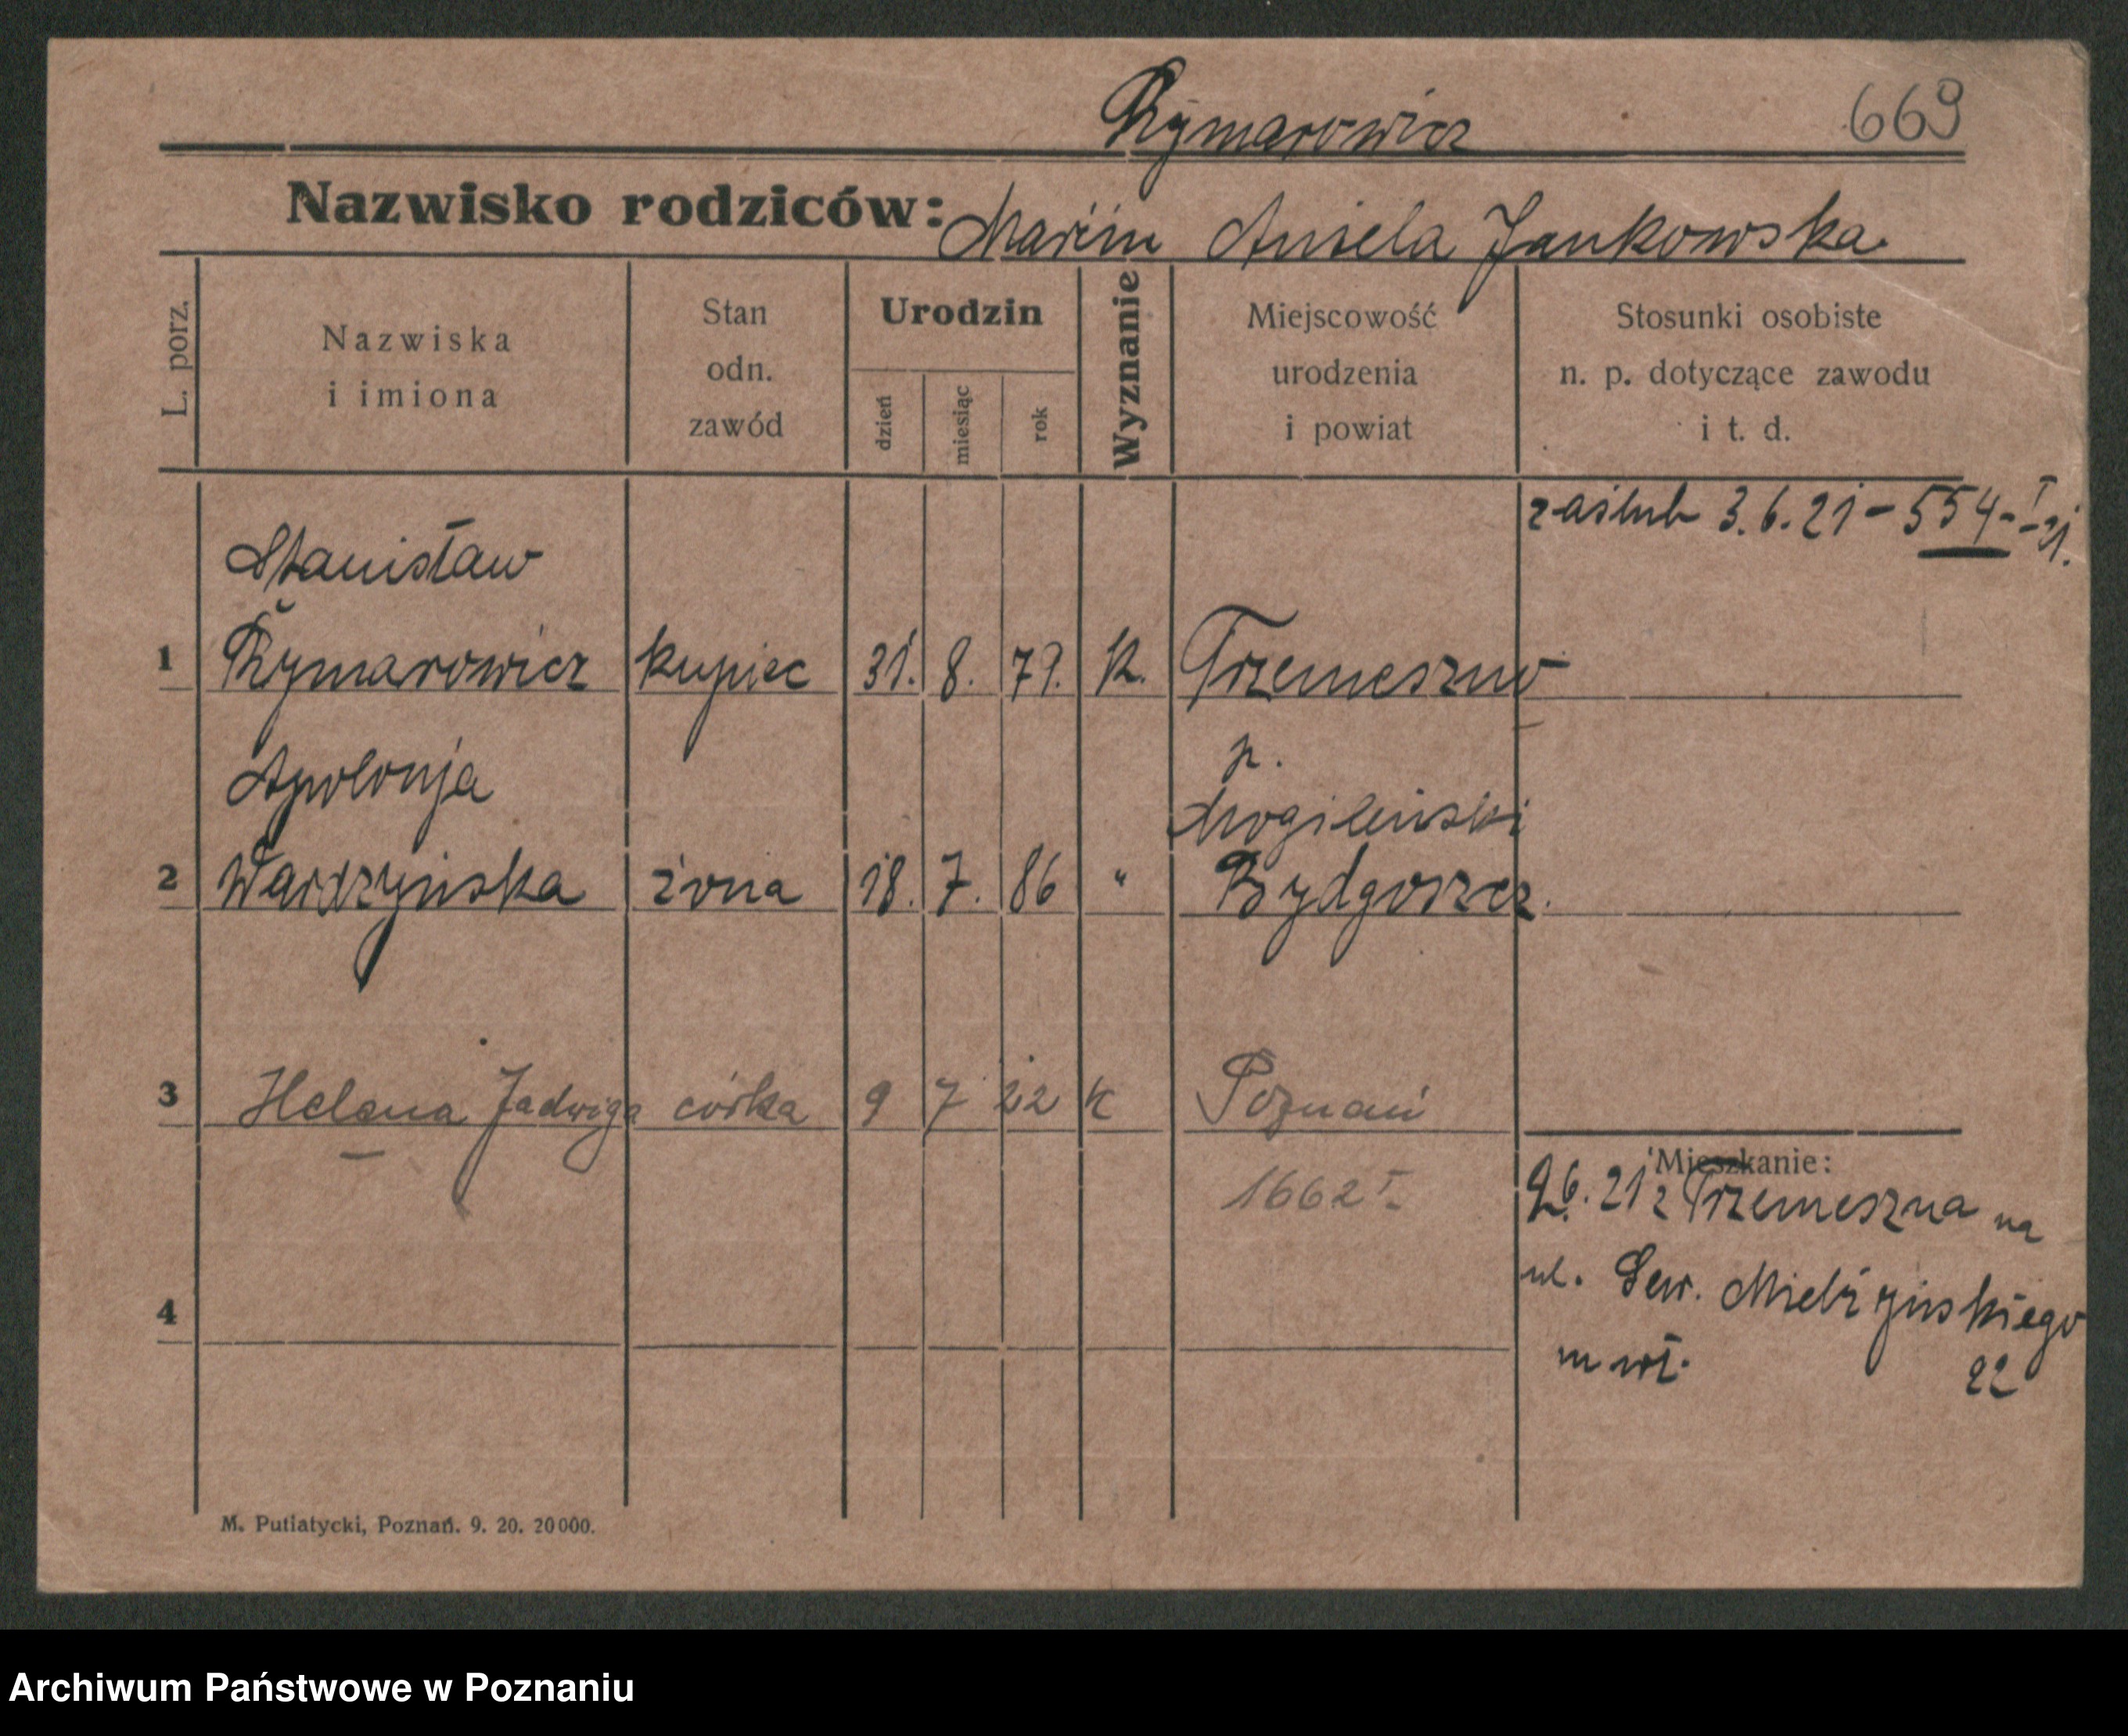 Rymarowicz 669
Nazwisko rodziców: Marcin Aniela Jankowska
L. porz.
Nazwiska
i imiona
Stan
odn.
zawód
Urodzin
dzień
miesiąc
rok
Wyznanie
Miejscowość
urodzenia
i powiat
Stosunki osobiste
n. p. dotyczące zawodu
i t. d.
zaślub 3.6.21 - 554 - I - 21.
Stanisław
1 Rymarowicz kupiec 31. 8. 79. K. Trzemeszno
p.
Apolonja
Mogileński
2 Wardzyńska żona 18. 7. 86 " Bydgoszcz.
3 Helena Jadwiga córka 9 7 22 K Poznań
1662 I
Mieszkanie:
9.6.21 z Trzemeszna na
ul. Sew. Mielżyńskiego
22
4
M. Putiatycki, Poznań. 9. 20. 20000.
Archiwum Państwowe w Poznaniu